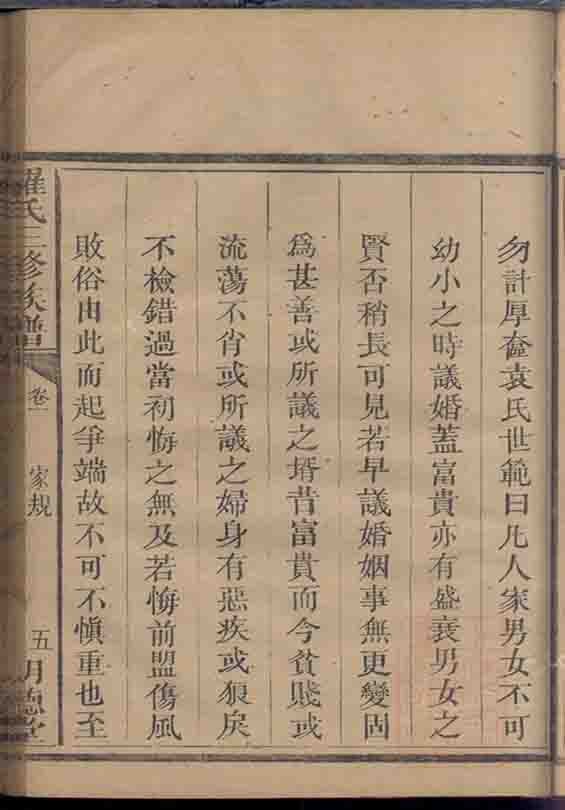 勿計厚奩袁氏世範曰凡人家男女不可
幼小之時議婚蓋富貴亦有盛衰男女之
賢否稍長可見若早議婚姻事無更變固
為甚善或所議之壻昔富貴而今貧賤或
流蕩不肖或所議之婦身有惡疾或狼戾
不檢錯過當初悔之無及若悔前盟傷風
敗俗由此而起爭端故不可不慎重也至
羅氏三修族譜
卷一
家規
五
明德堂